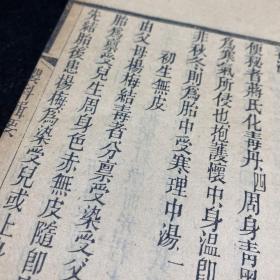 便秘者蔣氏化毒丹四身青黑
為寒氣所侵也抱護懷中身溫即
非秋冬則為胎中受寒理中湯一
初生無皮
由父母楊梅結毒者分稟受染受父
胎為稟受兒生周身色赤無皮隨即
先結胎後患楊梅為染受兒或上身